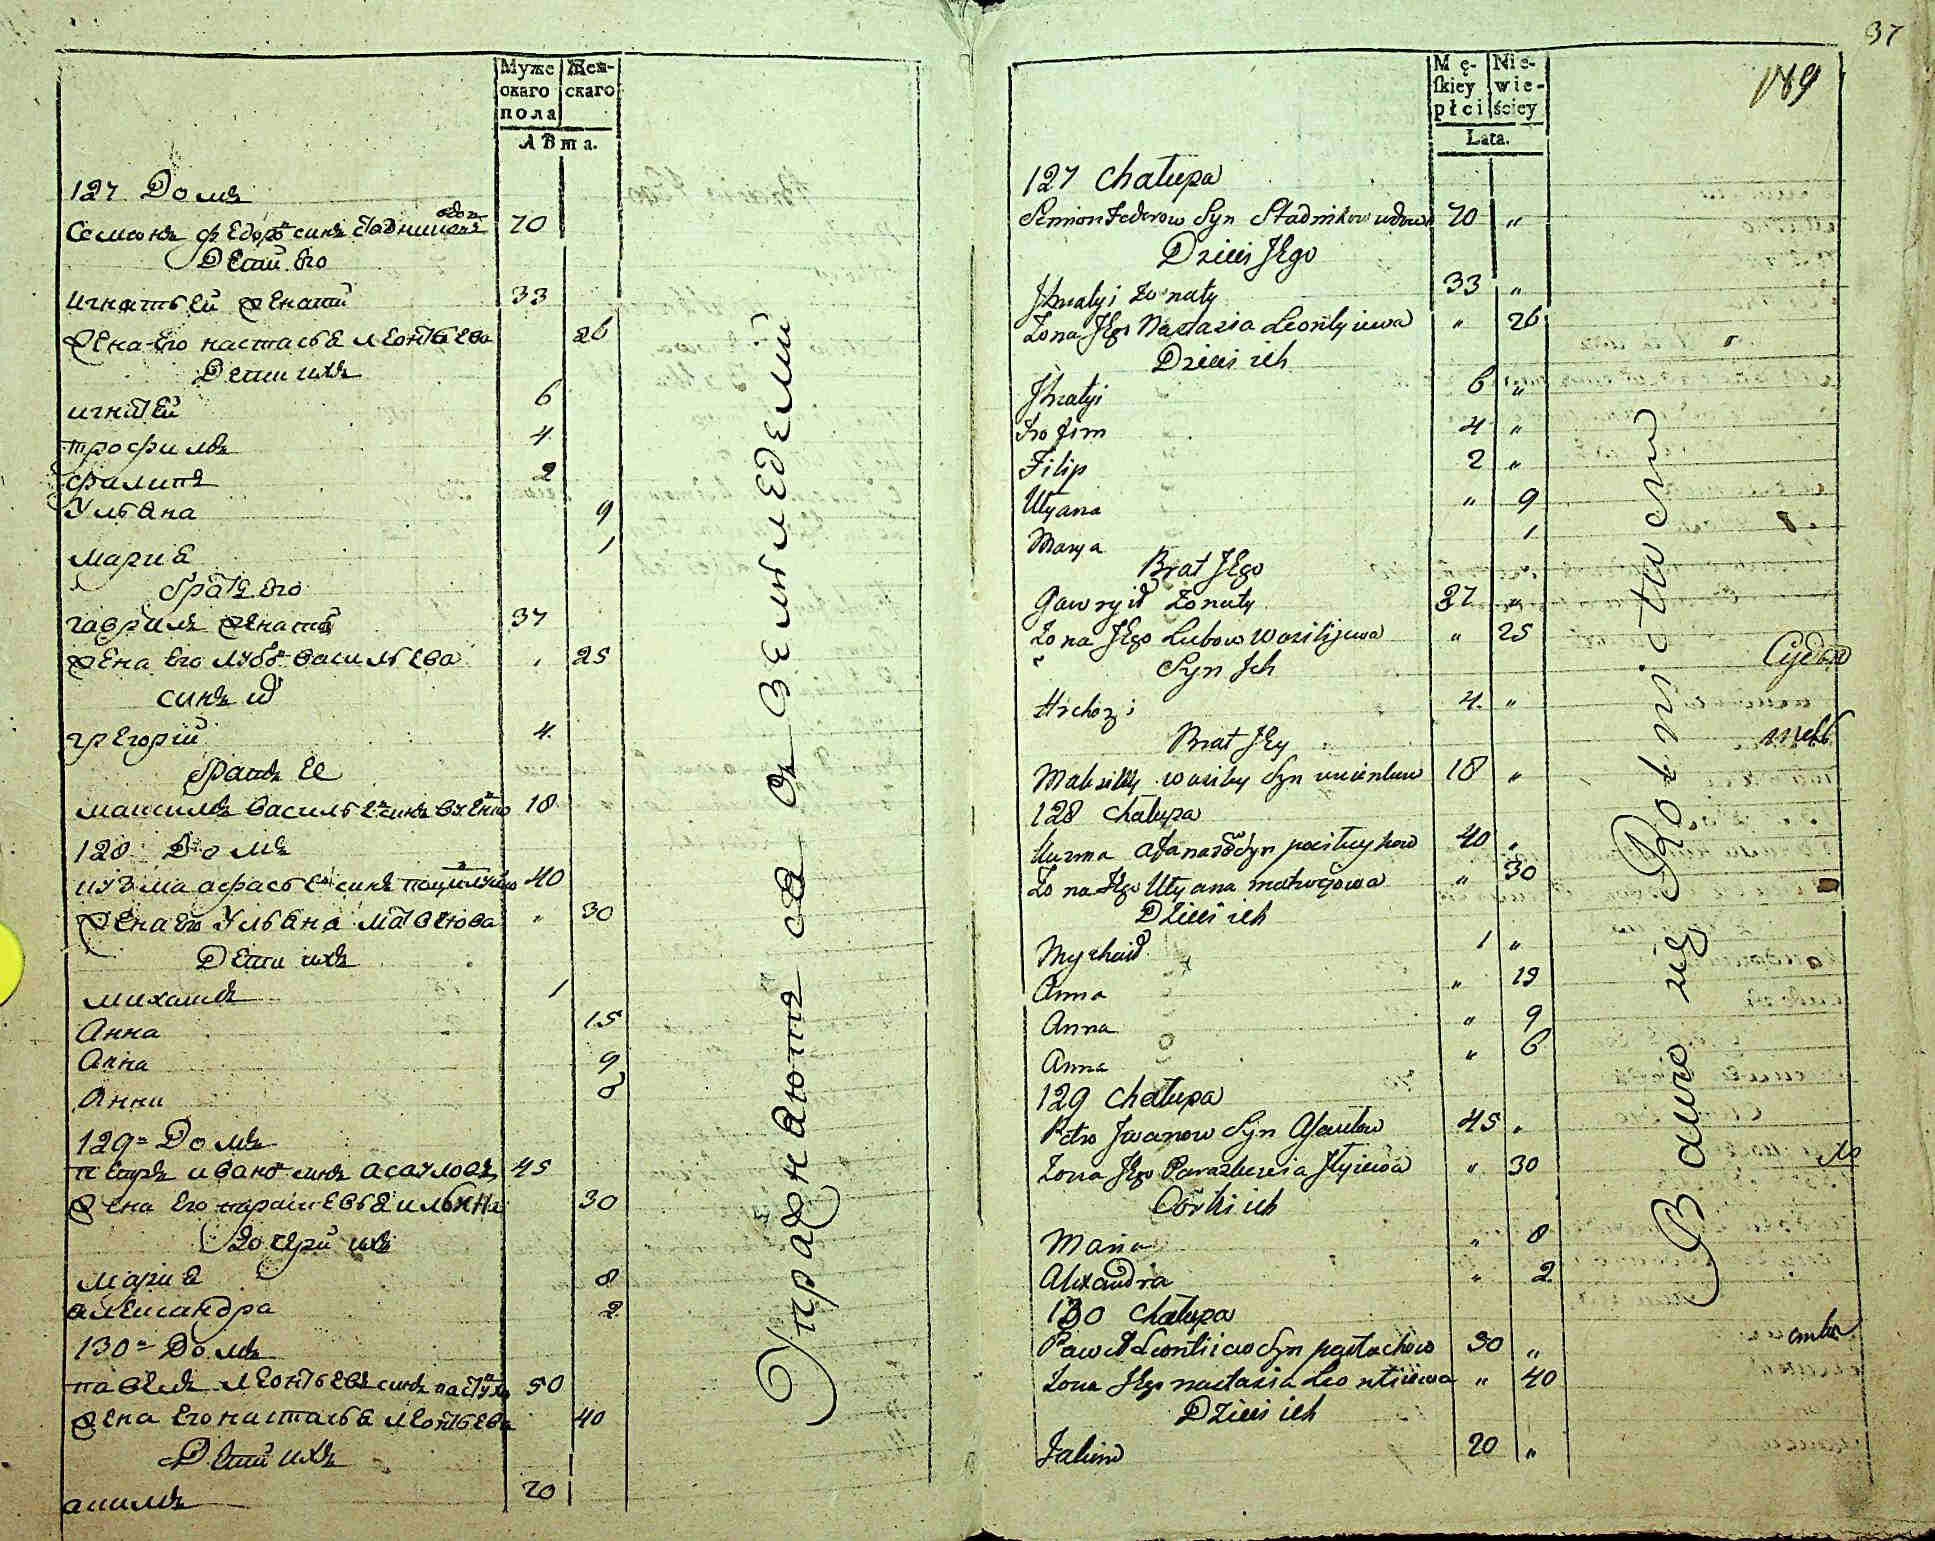 Муже Жен-
скаго скаго
пола
Лѣта.
127 Домъ
Семионъ Федоровъ синъ Стадниковъ вдов 70
Дети его
игнатьей женатъ 33
жена его настасья леонтьева 26
Дети ихъ
игнатей 6
трофимъ 4
филипъ 2
Ульяна 9
мария 1
братъ его
гаврилъ женатъ 37
жена его любовь васильева 25
синъ их
григорий 4
братъ ее
максимъ васильевъ синъ 18
128 Домъ
кузма афанасьевъ синъ 40
жена его Ульяна матвеюва " 30
Дети ихъ
михаилъ 1
Анна 15
Анна 9
Анна 8
129 = Домъ
петръ ивановъ синъ асауловъ 45
жена его парасковья ильина 30
Дочери ихъ
мария 8
александра 2
130 = Домъ
павелъ леонтьевъ синъ пастухов 50
жена его настасья леонтьева 40
Дети ихъ
акимъ 20
Упражняются въ земледелии
37
189
Mę- Nie-
skiey wie-
płci ściey
Lata.
127 Chałupa
Semion Fedorow Syn Stadnikow wdow 70 "
Dzieci Jego
Jhnatyi żonaty 33 "
Żona Jego Nastazia Leontyiewa " 26
Dzieci ich
Jhnatyi 6 "
Trofim 4 "
Filip 2 "
Ulyana " 9
Marya 1
Brat Jego
Gawryił żonaty 37 "
Żona Jego Lubow Wasiliiewa " 25
Syn Jch
Hrehory 4 "
Brat Jey
Maksim Wasiley Syn 18 "
128 Chałupa
Kuzma Afanasow Syn pastuchow 40 "
Żona Jego Ulyana matweiowa " 30
Dzieci ich
Mychaił 1 "
Anna " 15
Anna " 9
Anna " 6
129 Chałupa
Petro Jwanow Syn Asaułow 45 "
Żona Jego Paraskewia Jlyiewa " 30
Córki ich
Maria " 8
Alexandra " 2
130 Chałupa
Paweł Leontiiew Syn pastuchow 50 "
Żona Jego nastazia Leontiiewa " 40
Dzieci ich
Jakim 20 "
Bawio się Rolnictwem